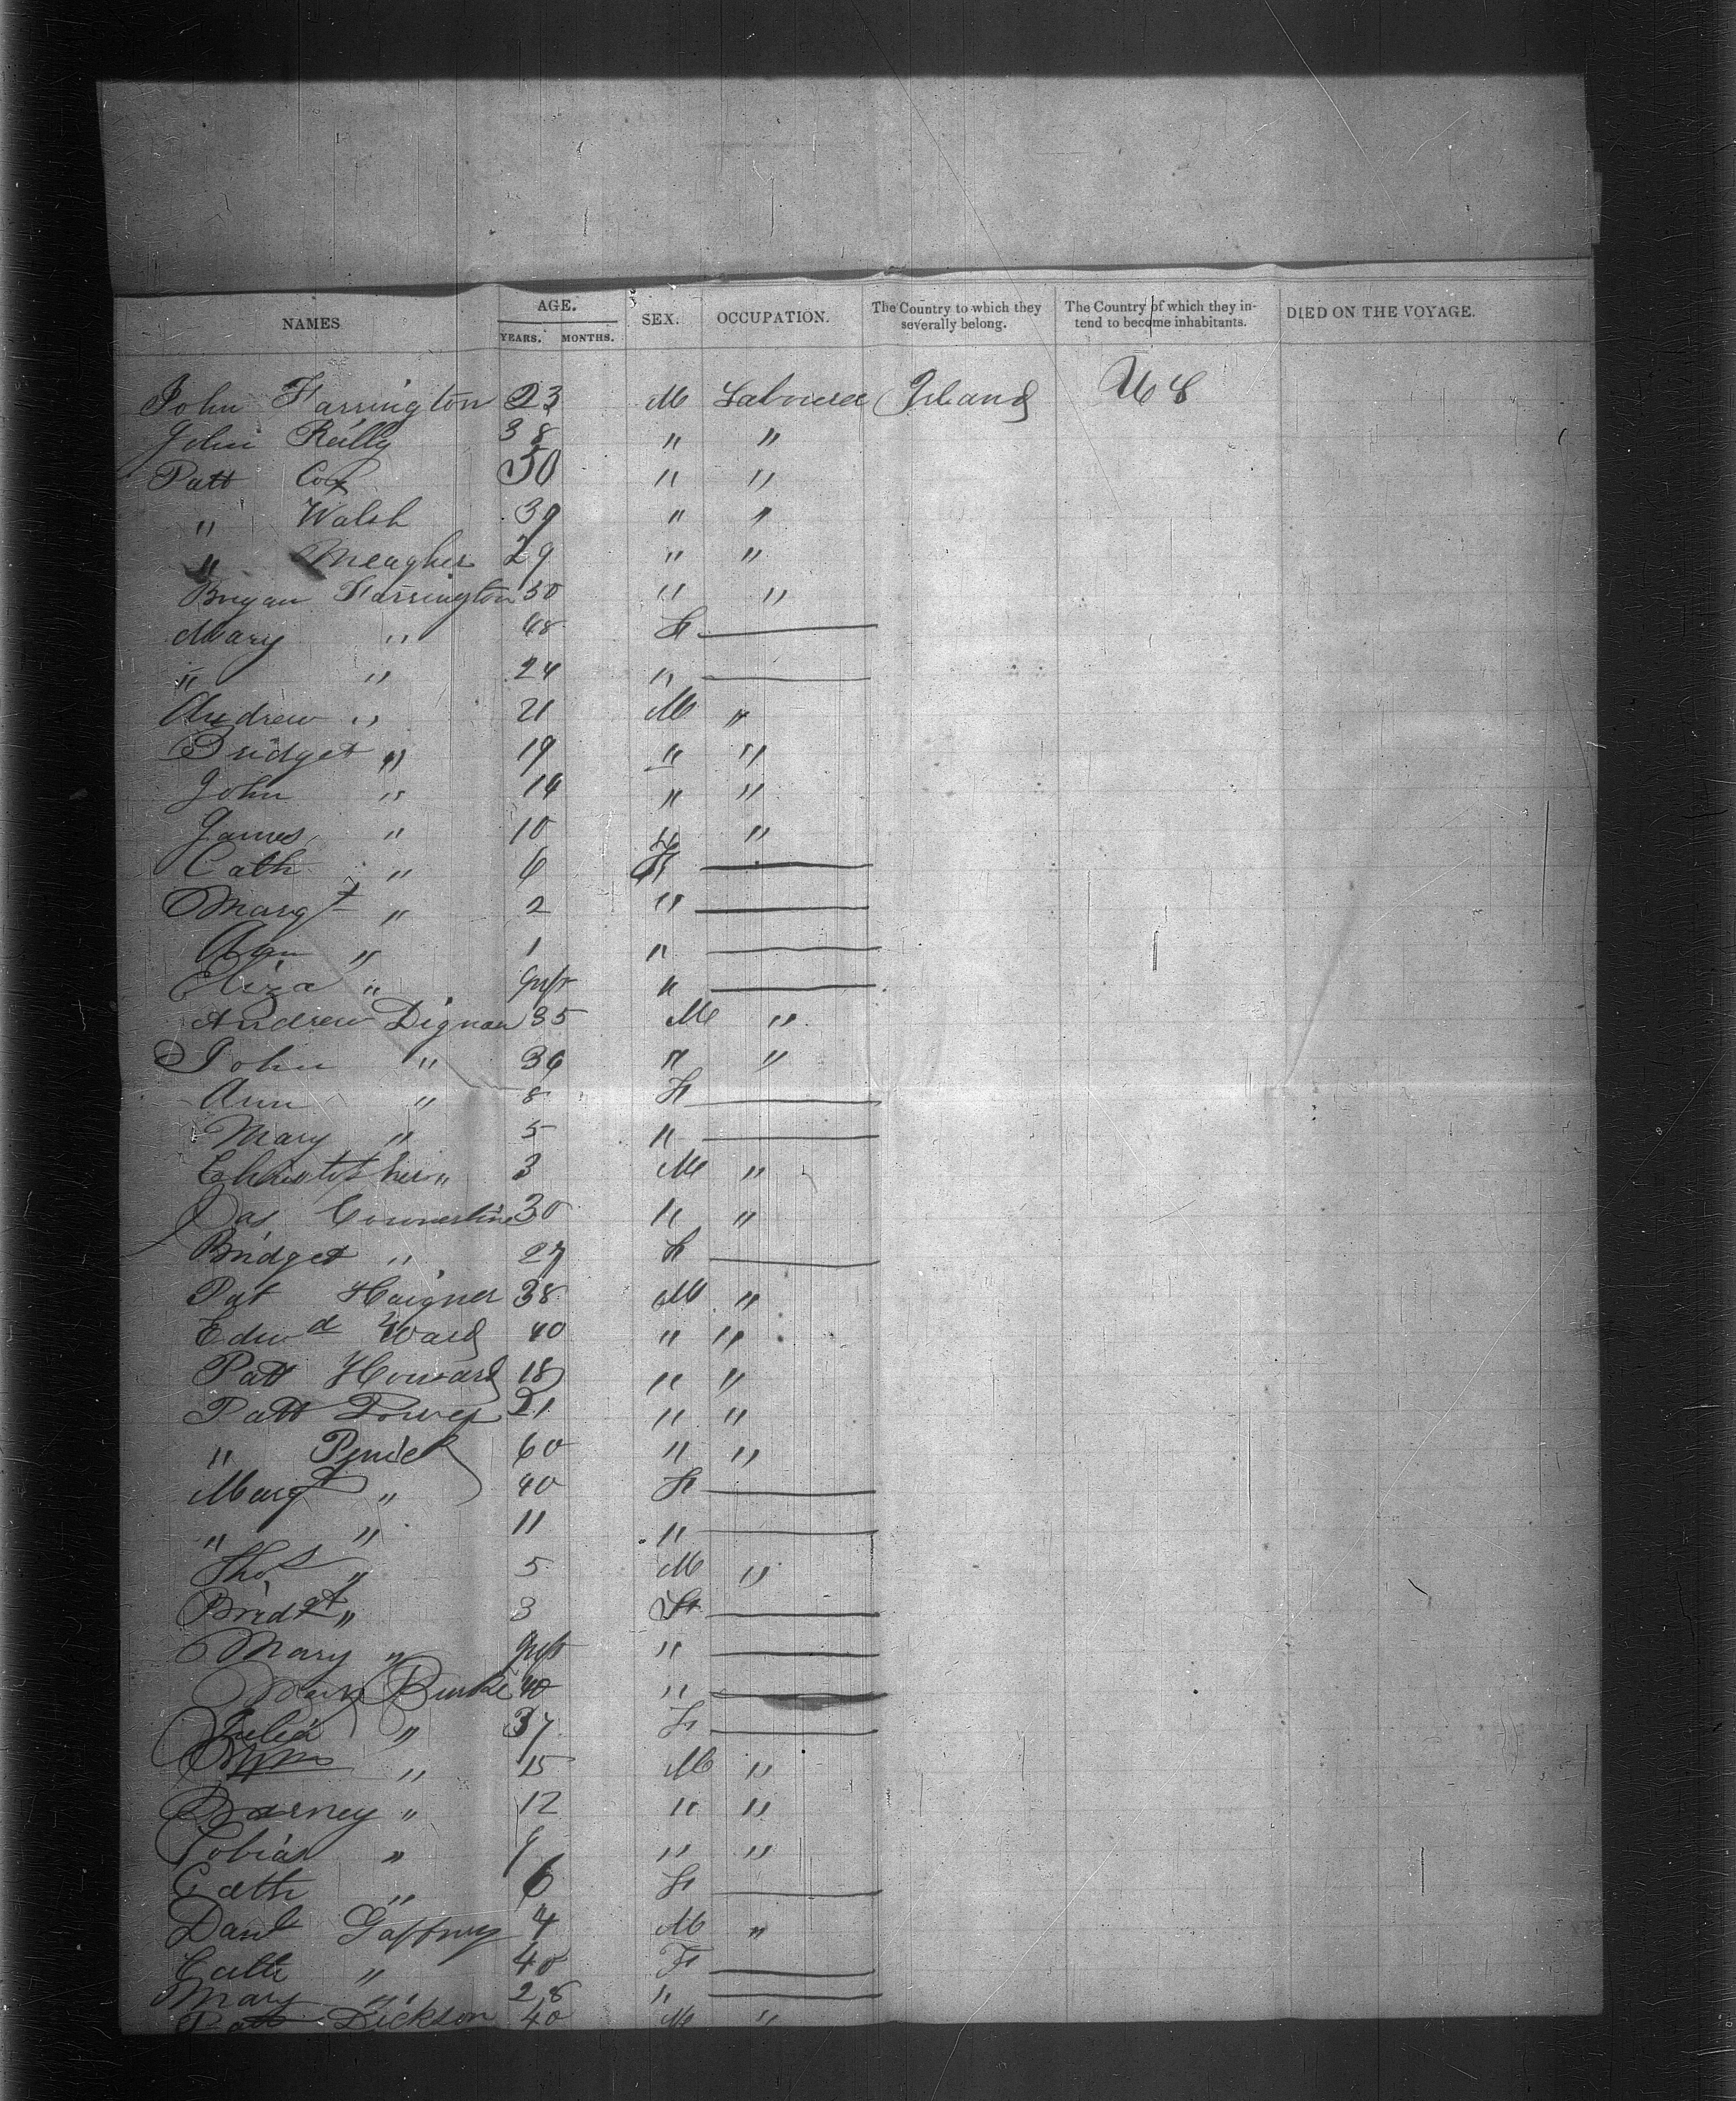 NAMES AGE. SEX. OCCUPATION. The Country to which they severally belong. The Country of which they intend to become inhabitants. DIED ON THE VOYAGE.
YEARS. MONTHS.
John Farrington 23 M Labourer Ireland U S
John Reilly 38 " "
Patt Cox 50 " "
" Walsh 39 " "
" Meagher 29 " "
Bryan Farrington 50 " "
Mary " 48 F
" " 24 "
Andrew " 21 M "
Bridget " 19 " "
John " 14 " "
James " 10 " "
Cath " 6 F
Margt " 2 "
Ann " 1 "
Eliza " Inft "
Andrew Dignan 35 M "
John " 36 " "
Ann " 8 F
Mary " 5 "
Christopher " 3 M "
Jas 30 " "
Bridget " 27 F
Pat 38 M "
Edwd Ward 40 " "
Patt Howard 18 " "
Patt Power 21 " "
" 60 " "
Margt " 40 F
" " 11 "
Thos " 5 M "
Bridgt " 3 F
Mary " Inft "
Mary Burke 40 "
Julia " 37 F
Wm " 15 M "
Barney " 12 " "
Tobias " 9 " "
Cath " 6 F
Danl Gaffney 4 M "
Cath " 40 F
Mary " 28 "
Patt Dickson 40 M "